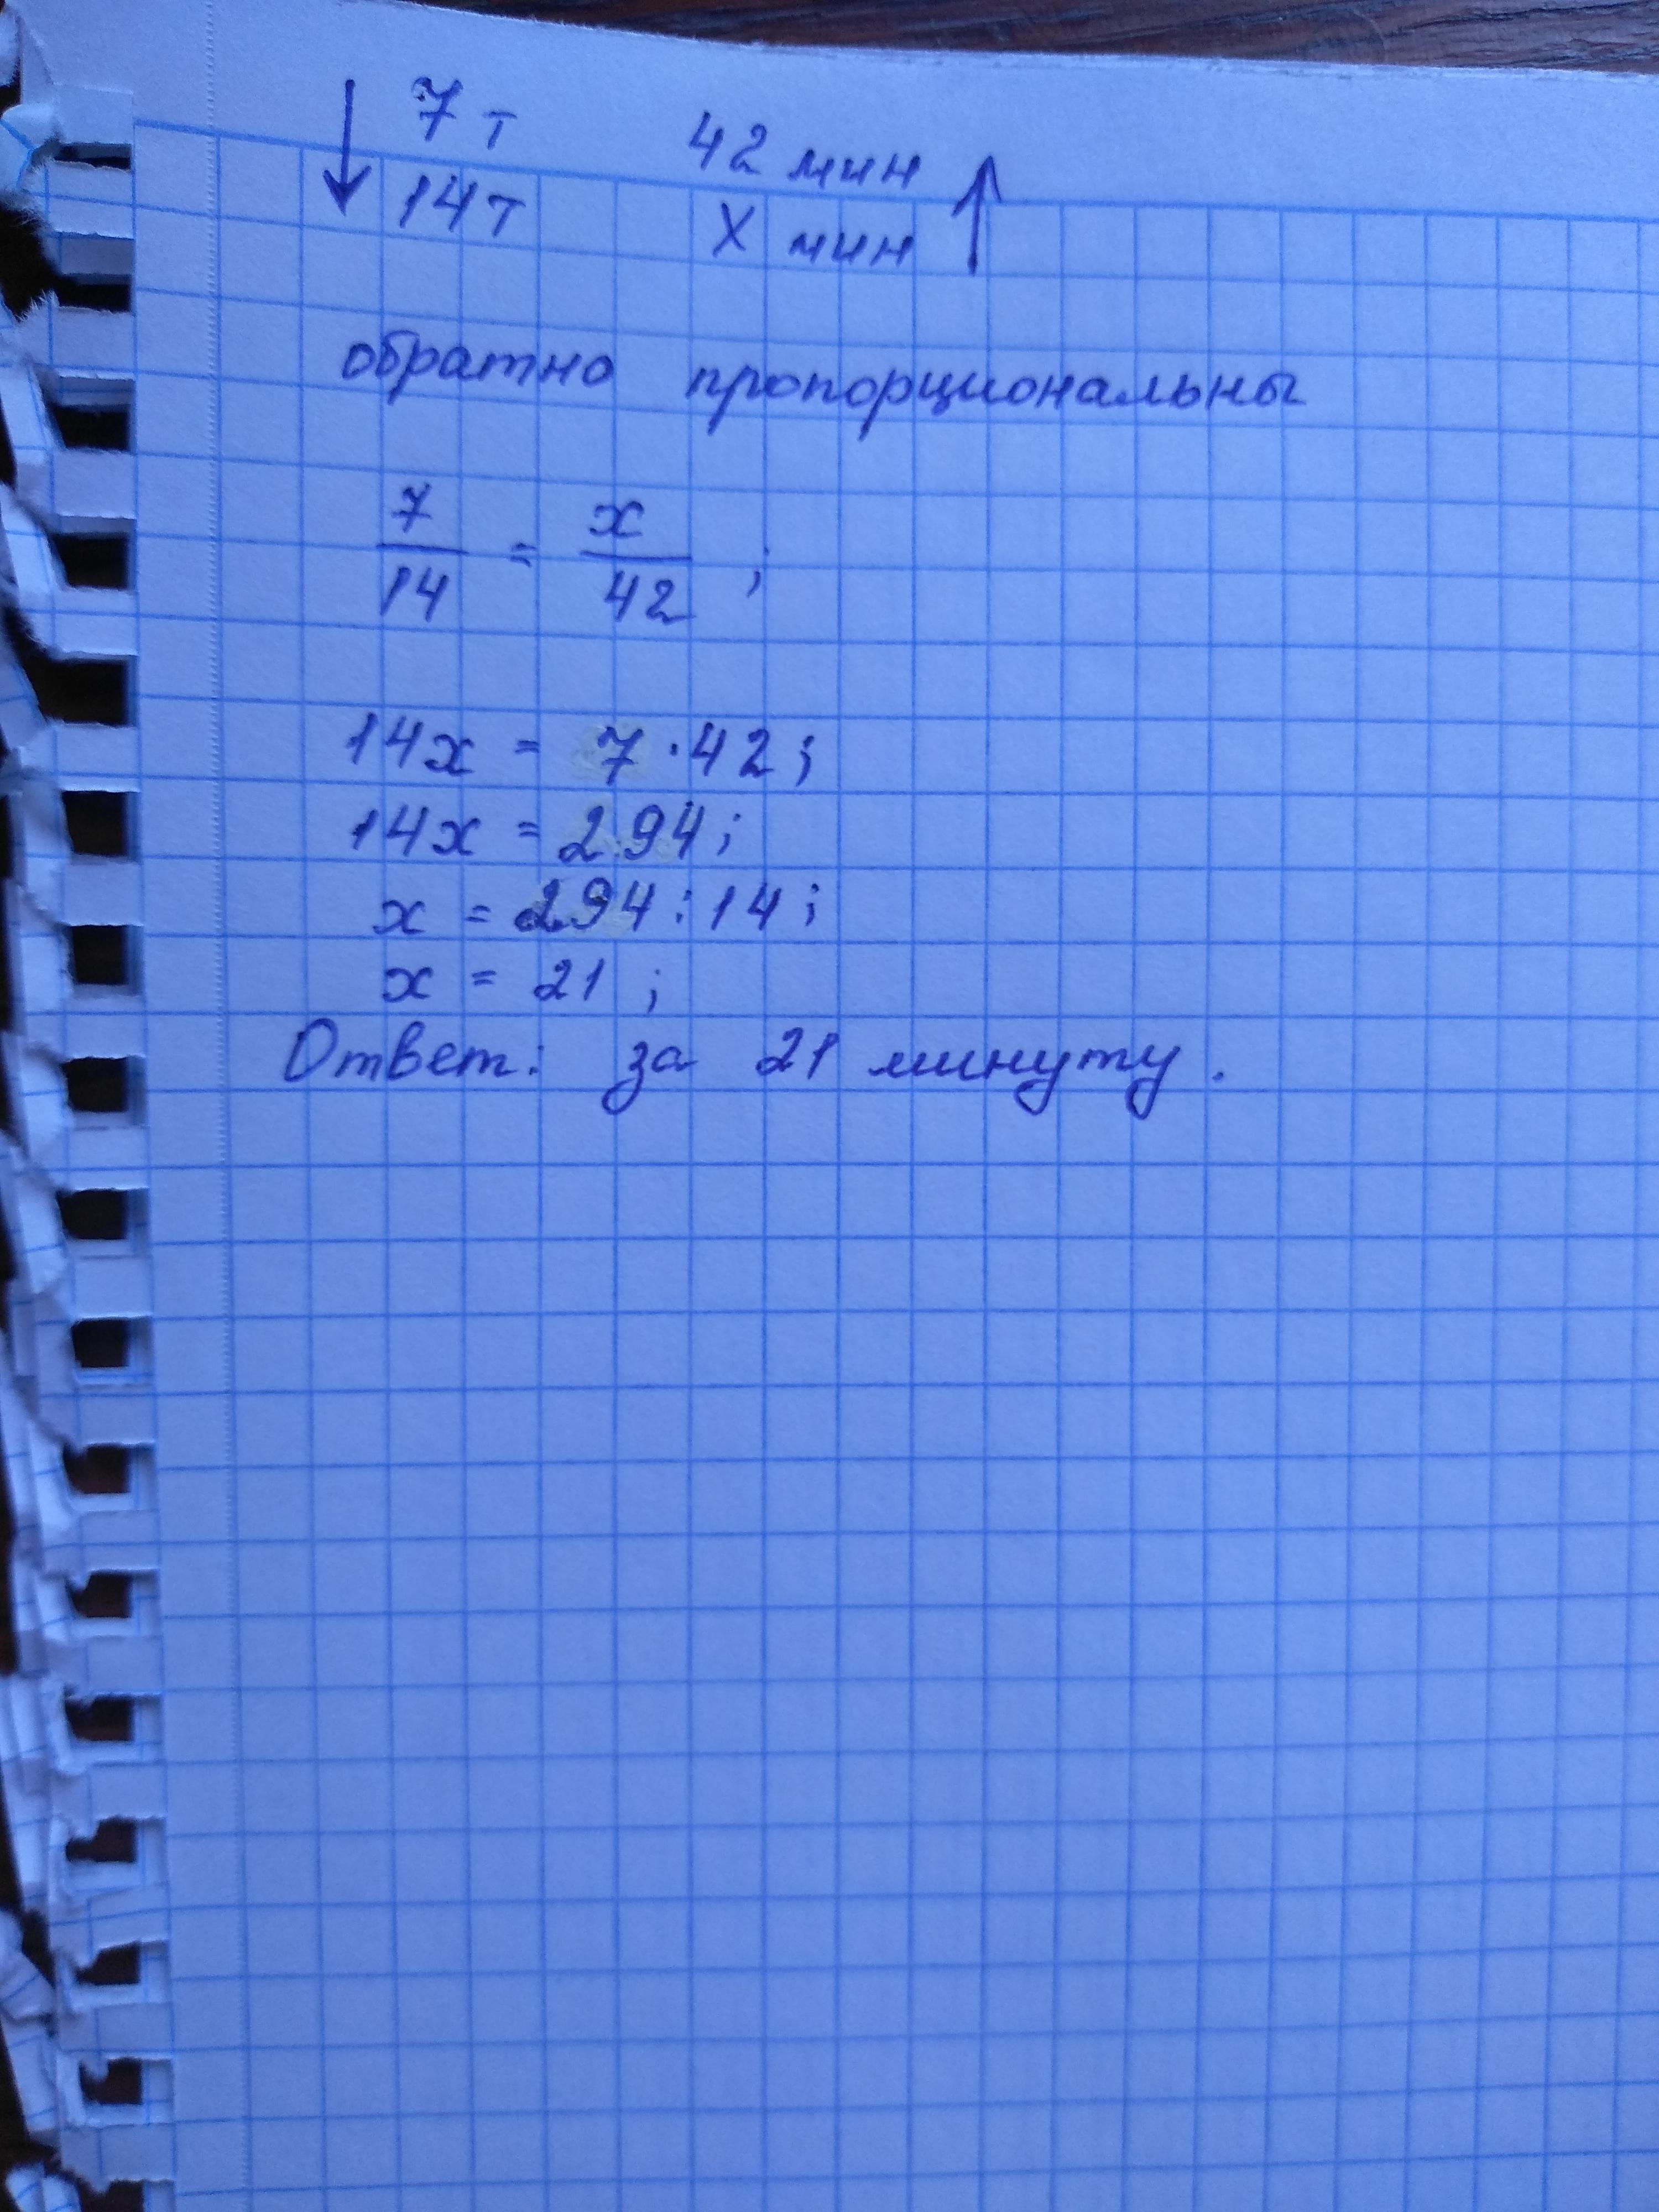 7 т 42 мин
14 т X мин
обратно пропорциональны
7/14 = x/42 ;
14x = 7 · 42 ;
14x = 294 ;
x = 294 : 14 ;
x = 21 ;
Ответ: за 21 минуту .